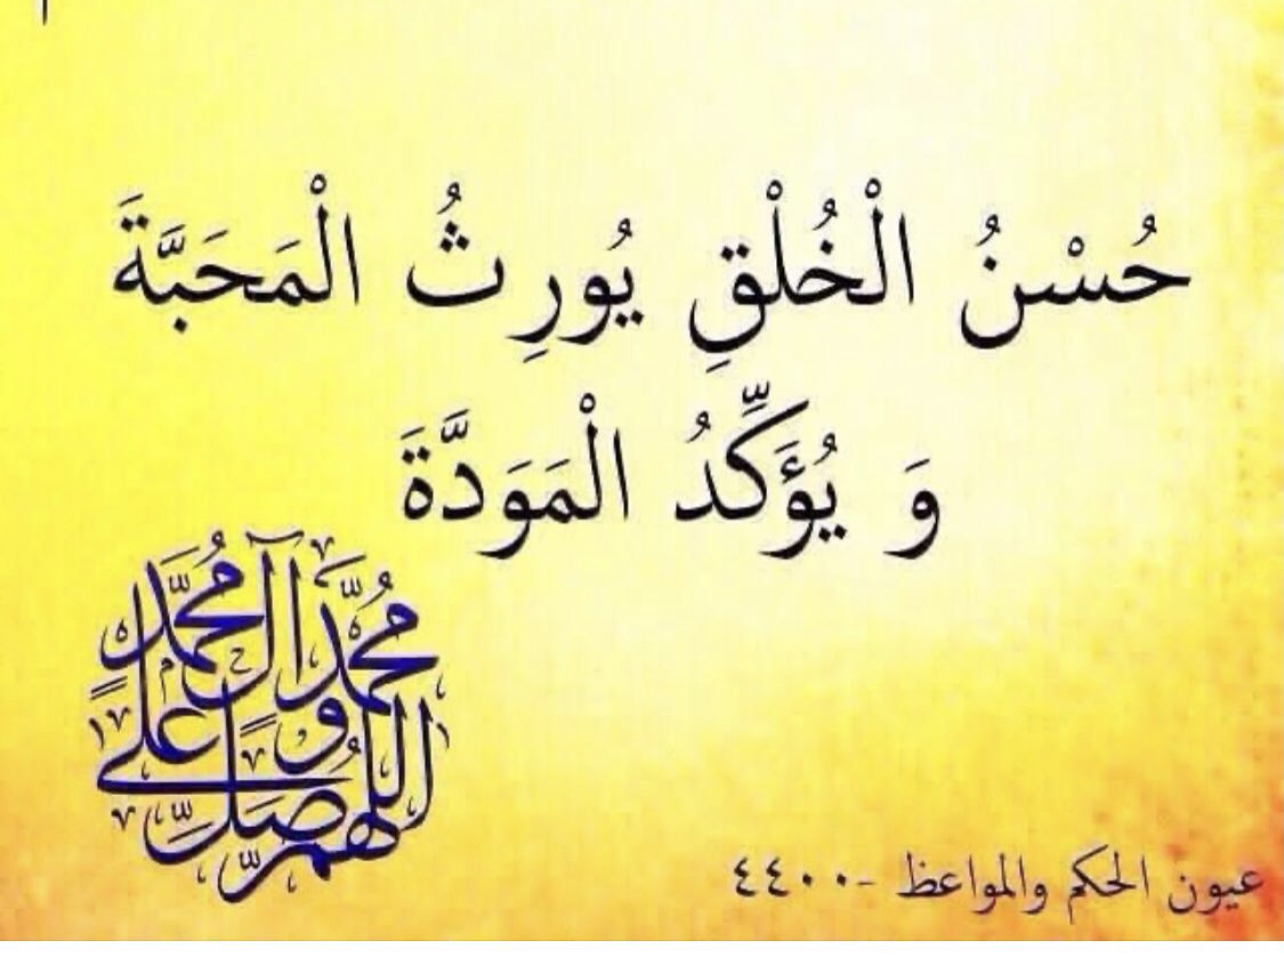 حُسْنُ الْخُلْقِ يُورِثُ الْمَحَبَّةَ
وَ يُؤَكِّدُ الْمَوَدَّةَ
اللهم صَلِّ على مُحمَّدٍ وآل مُحمَّدٍ
عيون الحكم والمواعظ - ٤٤٠٠